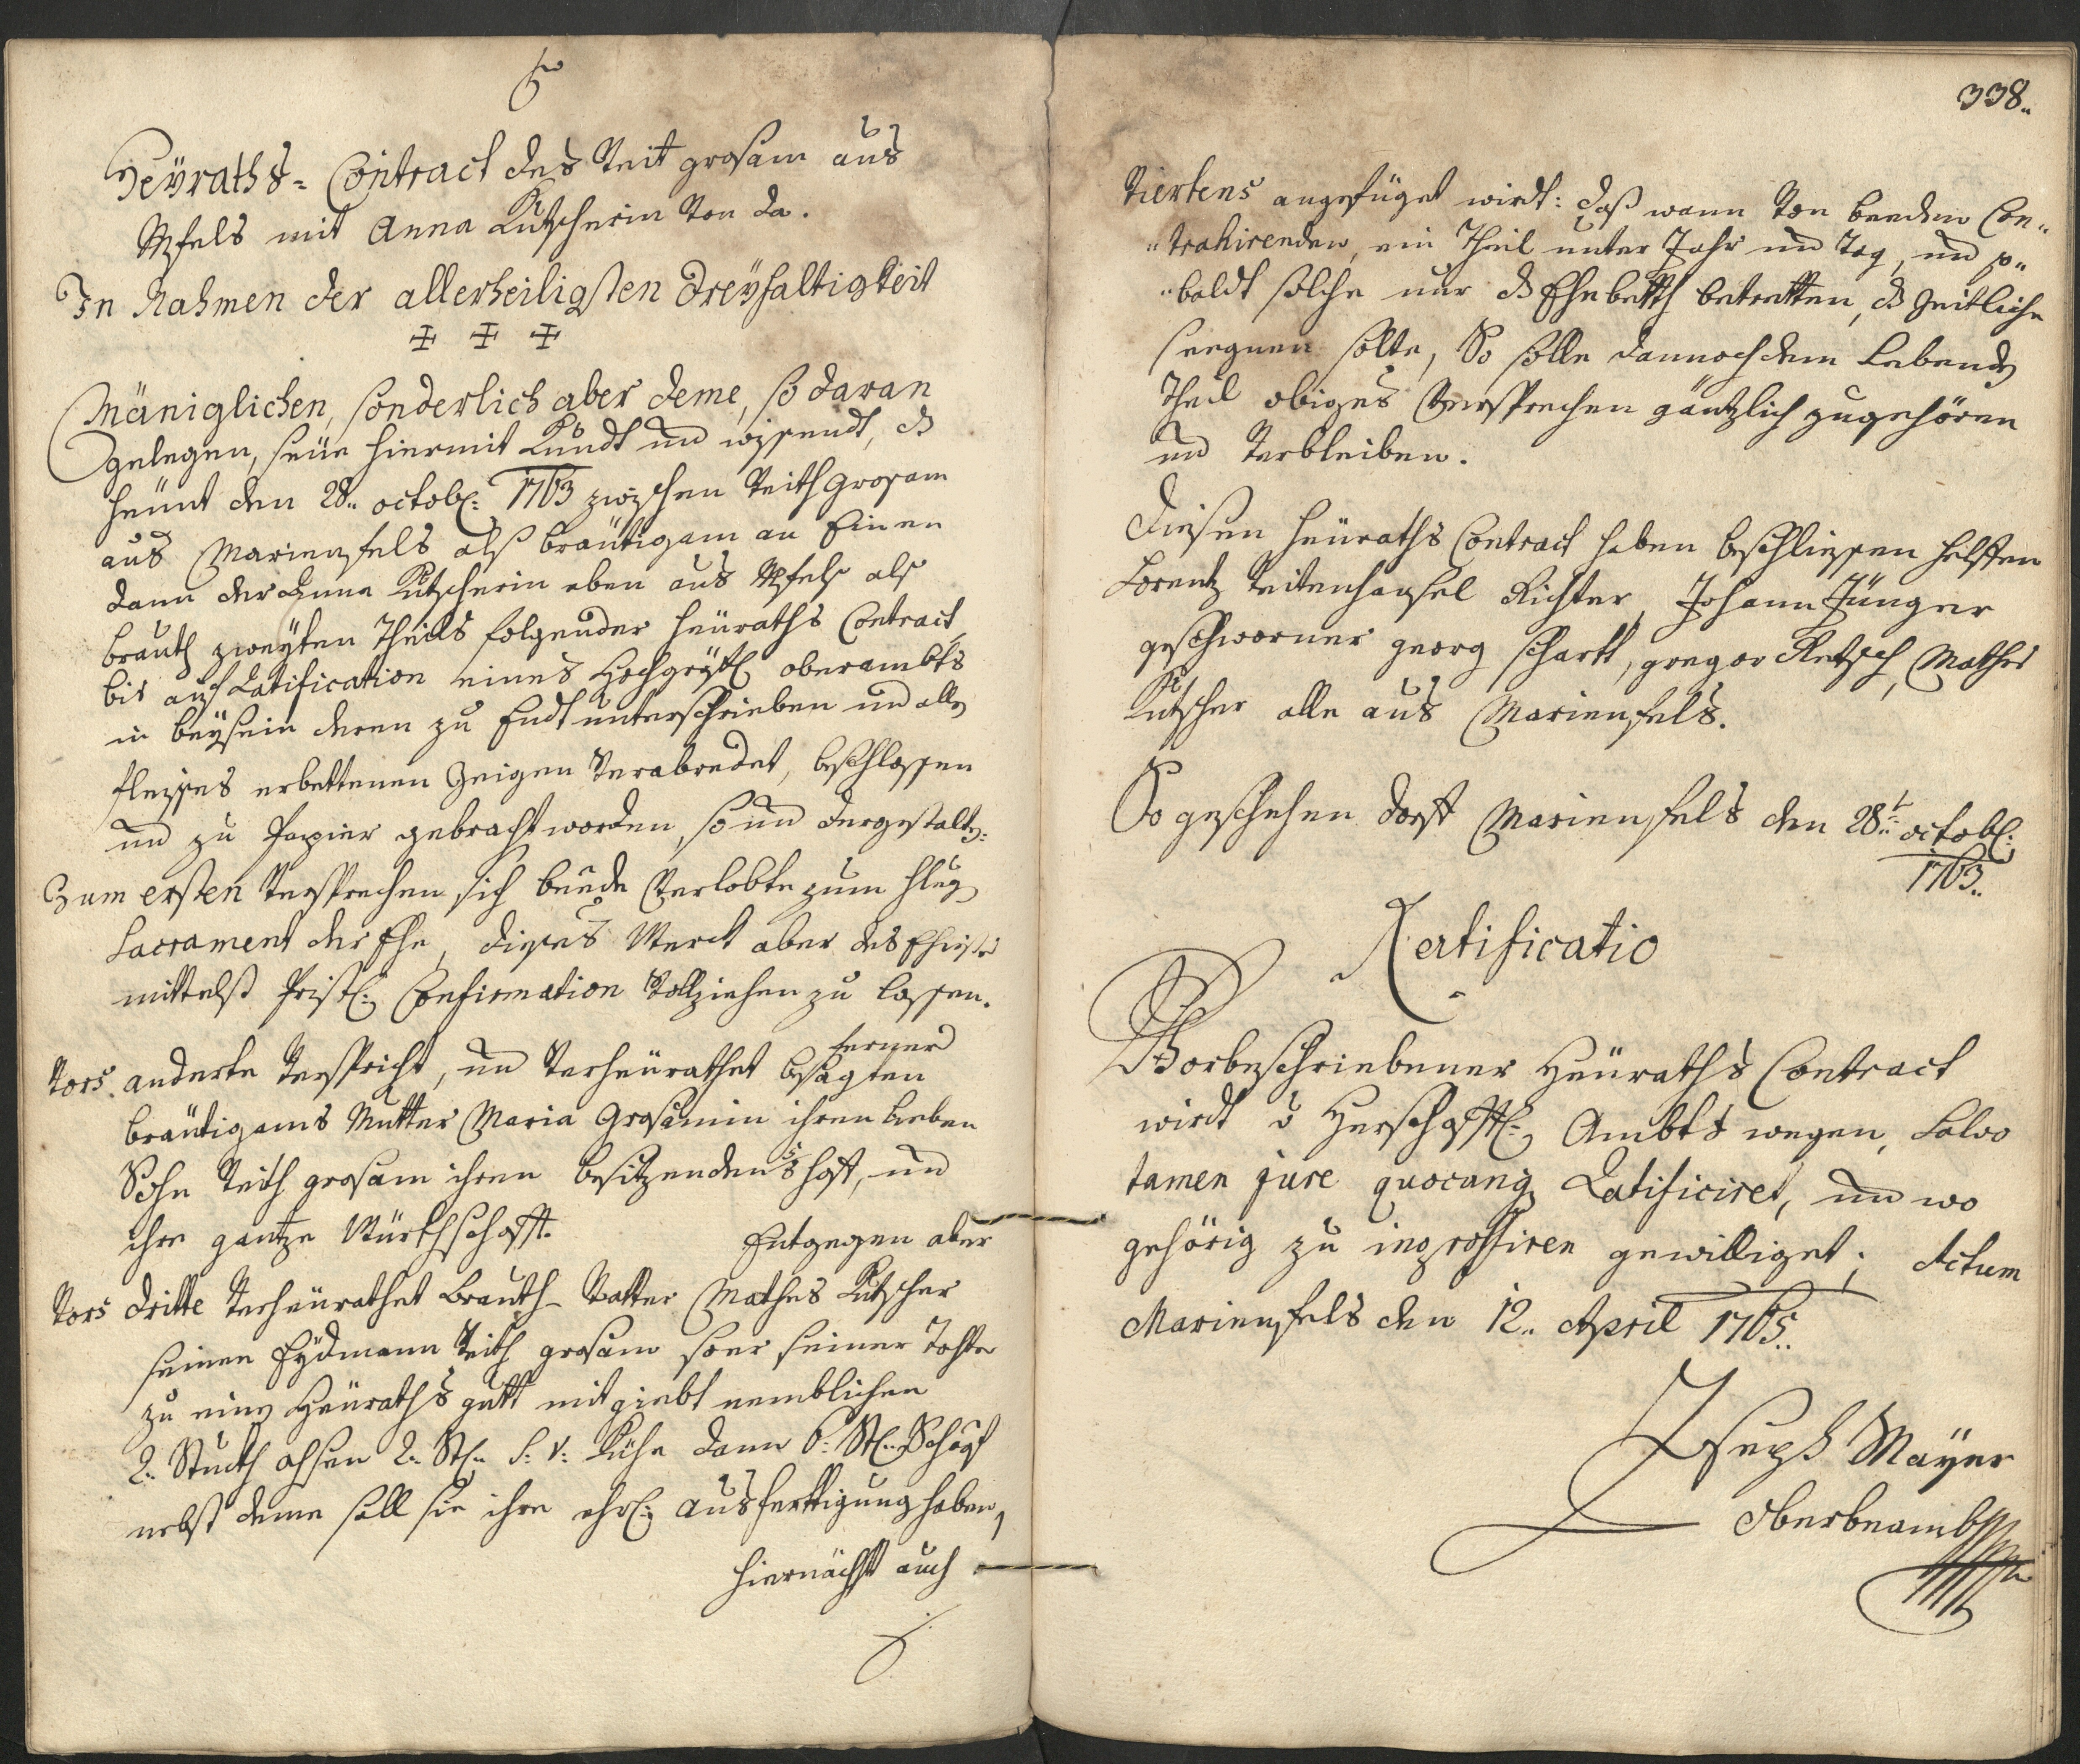 Heÿraths- Contract des Veit grosam aus
Mfels mit Anna Kutscherin von da.
In Nahmen der allerheiligsten Dreÿfaltigkeit
✠ ✠ ✠
Mäniglichen, sonderlich aber deme, so daran
gelegen, seÿe hiermit Kundt und wissendt, dß
heünt den 28.. octobr: 1763 zwischen Veith Grosam
aus Marienfels alß bräutigam an Einen
dann der Anna Kutscherin eben aus Mfels als
brauth zweyten Theills folgender heüraths Contract
bis auf Ratification eines Hochgräfl oberambts
in beÿsein deren zu Endt unterschrieben und alles
fleisses erbettenen Zeigen verabredet, beschlossen
und zu Papier gebracht worden, so und dergestalten:
Zum ersten versprechen sich beede Verlobte zum Heÿl
Sacrament der Ehe, dieses Werck aber des Ehestes
mittelst Pristl: Confirmation vollziehen zu lassen.
ferner
Vors anderte verspricht, und verheurathet besagten
bräutigams Mutter Maria Grosamin ihren lieben
Sohn Veith grosam ihren besitzenden hoff, und
ihre gantze Würthschafft. Entgegen aber
Vors dritte verheurathet brauth-Vatter Mathes Kutscher
seinen Eÿdmann Veith grosam seiner Tohter
zu einen Heuraths gutt mit giebt nemblichen
2.. Stuckh ohsen 2.. St: S: V: Kühe dann 6: St: Schaaf
nebst deme soll sie ihre ehrl: ausferttigung haben,
hiernächst auch
338..
Viertens angefüget wirdt: daß wann von beeden Con„
„trahirenden, ein Theil unter Jahr und Tag, und so„
„baldt solche nur dß Ehebetth betretten, dß Zeitliche
seegnen solte, So solle dannoch dem Lebenden
Theil obiges Versprechen gäntzlich zugehören
und verbleiben.
Diesen heüraths Contract haben beschliessen helffen
Lorentz Veitenhansel Richter, Johann Jünger
geschworner georg schartt, gregor Retzsch, Mathes
Kutscher alle aus Marienfels.
So geschehen dorff Marienfels den 28.t octobr:
1763..
Rattificatio
Vorbeschriebener Heüraths Contract
wirdt v Herschafftl: Ambts wegen, Salvo
tamen jure quocunq Ratificiret, und wo
gehörig zu ingrossiren gewilliget; Actum
Marienfels den 12.. April 1765..
Joseph Mayer
Oberbeambter